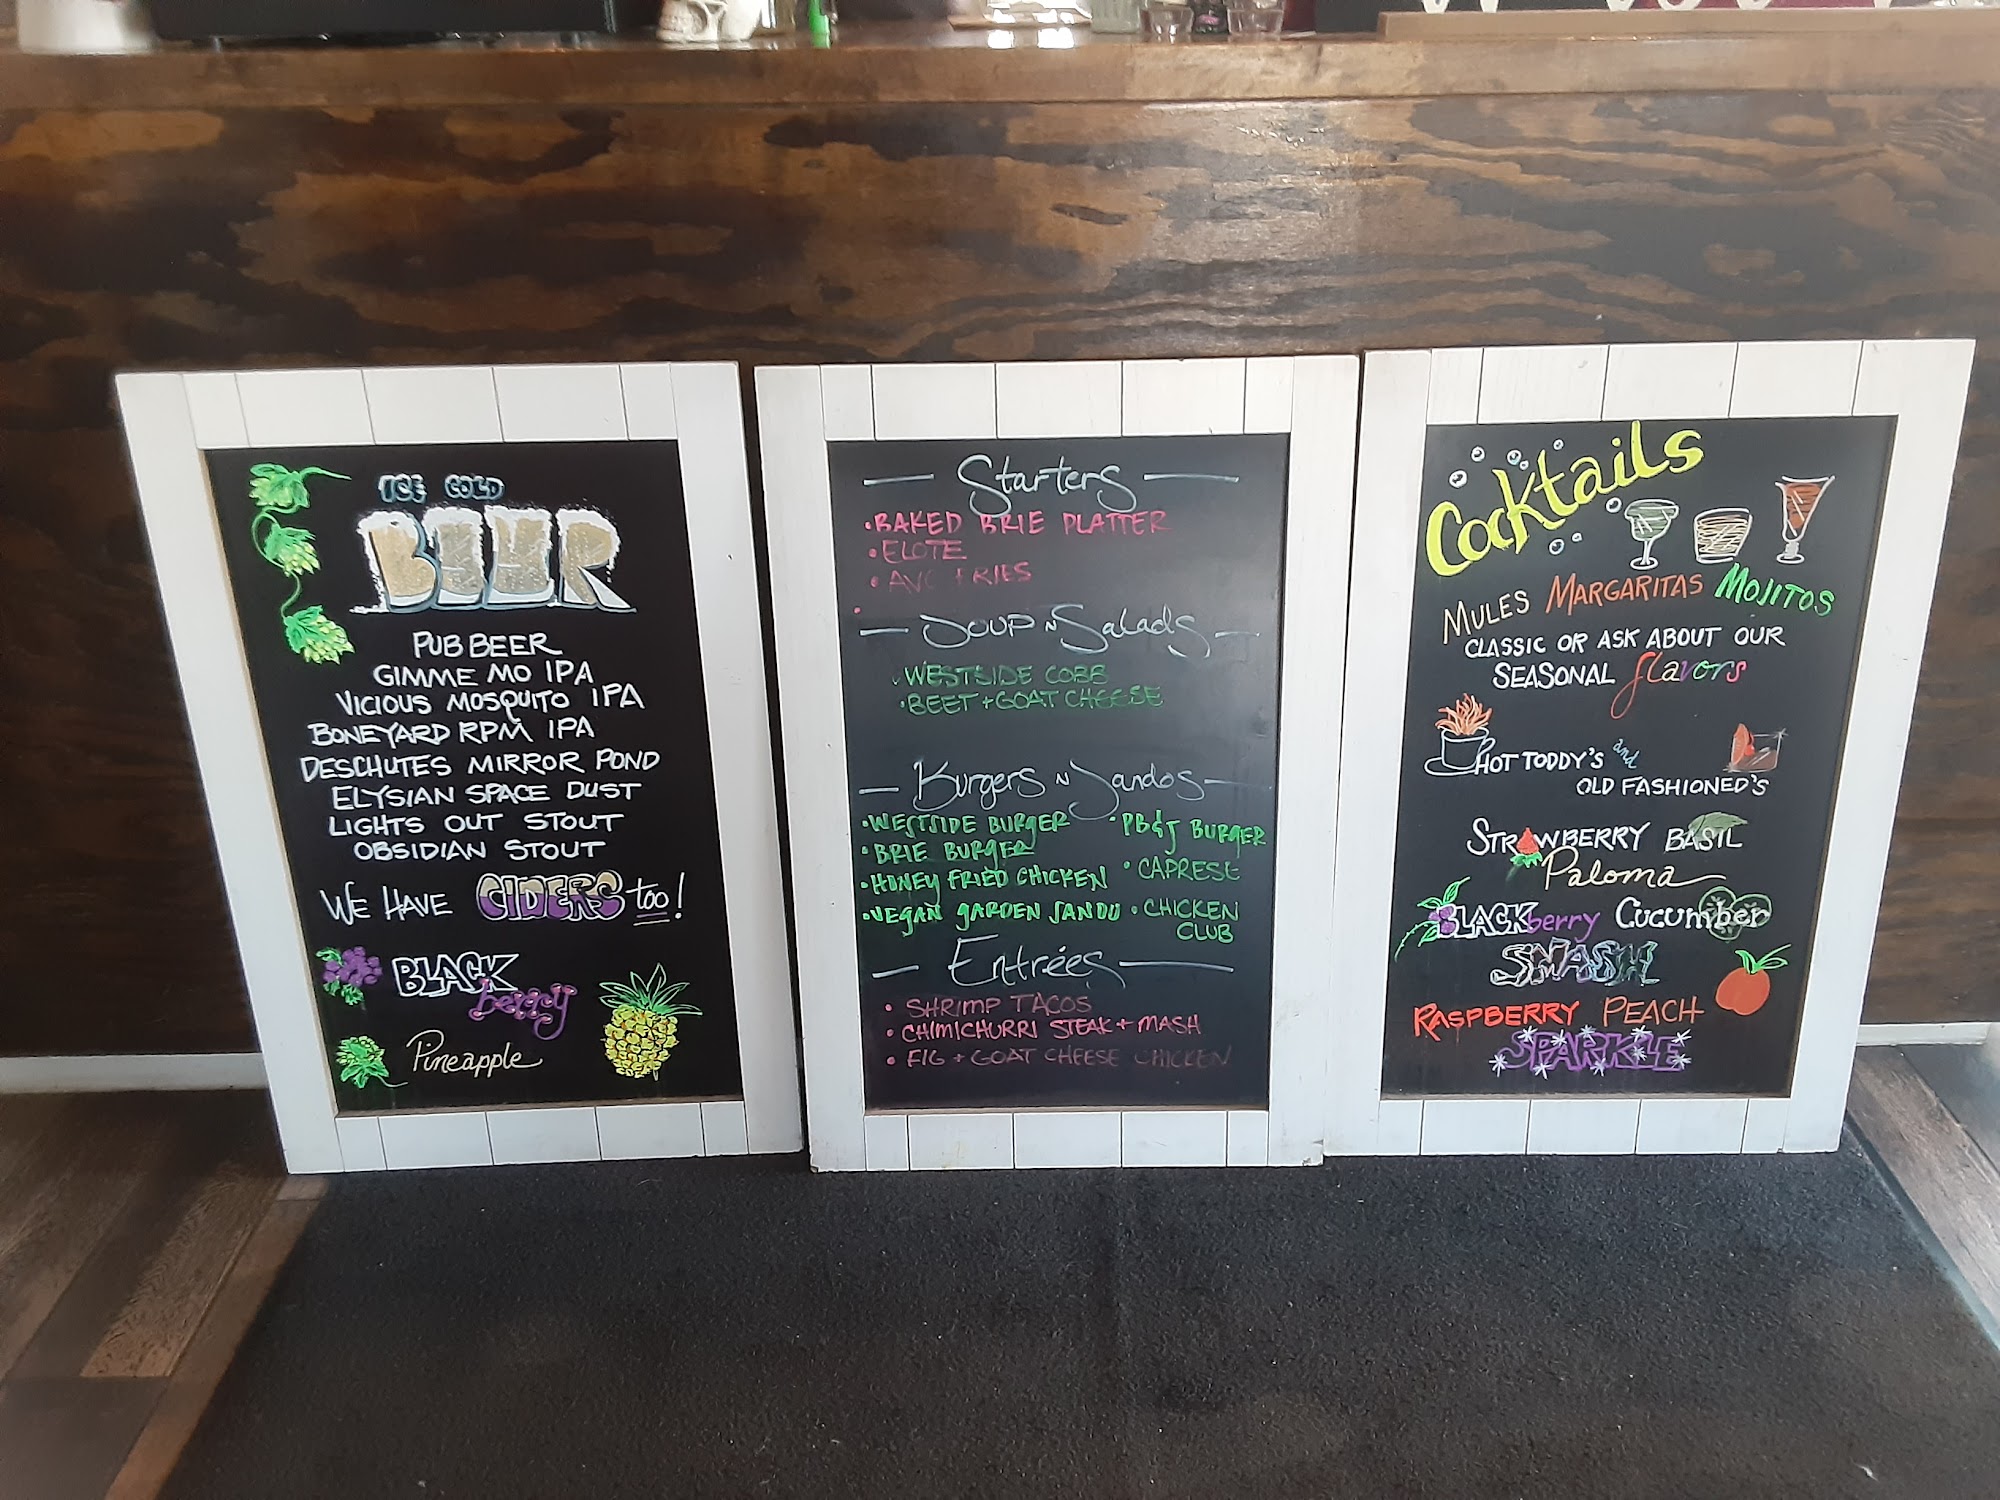 ICE COLD
BEER
PUB BEER
GIMME MO IPA
VICIOUS MOSQUITO IPA
BONEYARD RPM IPA
DESCHUTES MIRROR POND
ELYSIAN SPACE DUST
LIGHTS OUT STOUT
OBSIDIAN STOUT
WE HAVE CIDERS too!
BLACK
berry
Pineapple
Starters
• BAKED BRIE PLATTER
• ELOTE
• AVO FRIES
•
Soup n Salads
• WESTSIDE COBB
• BEET + GOAT CHEESE
Burgers n Sandos
• WESTSIDE BURGER
• BRIE BURGER
• HONEY FRIED CHICKEN
• VEGAN GARDEN SANDO
• PB&J BURGER
• CAPRESE
• CHICKEN
CLUB
Entrées
• SHRIMP TACOS
• CHIMICHURRI STEAK + MASH
• FIG + GOAT CHEESE CHICKEN
Cocktails
MULES MARGARITAS MOJITOS
CLASSIC OR ASK ABOUT OUR
SEASONAL flavors
HOT TODDY'S and
OLD FASHIONED'S
STRAWBERRY BASIL
Paloma
BLACKberry Cucumber
SMASH
RASPBERRY PEACH
SPARKLE